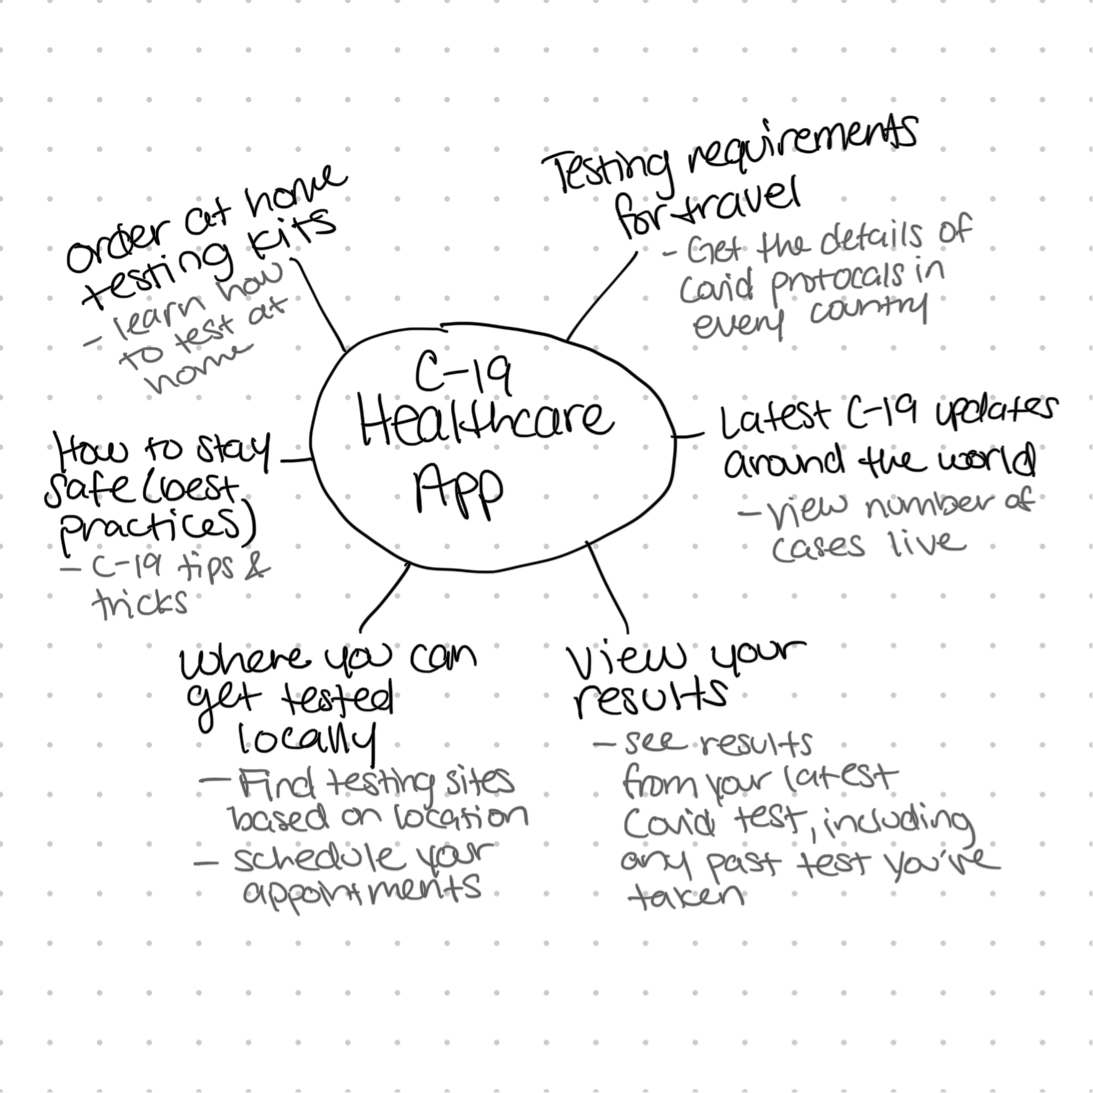 order at home
testing kits
- learn how
to test at
home
Testing requirements
for travel
- Get the details of
Covid protocals in
every country
C-19
Healthcare
App
Latest C-19 updates
around the world
- view number of
cases live
How to stay
safe (best
practices)
- C-19 tips &
tricks
where you can
get tested
locally
- Find testing sites
based on location
- schedule your
appointments
View your
results
- see results
from your latest
Covid test, including
any past test you've
taken